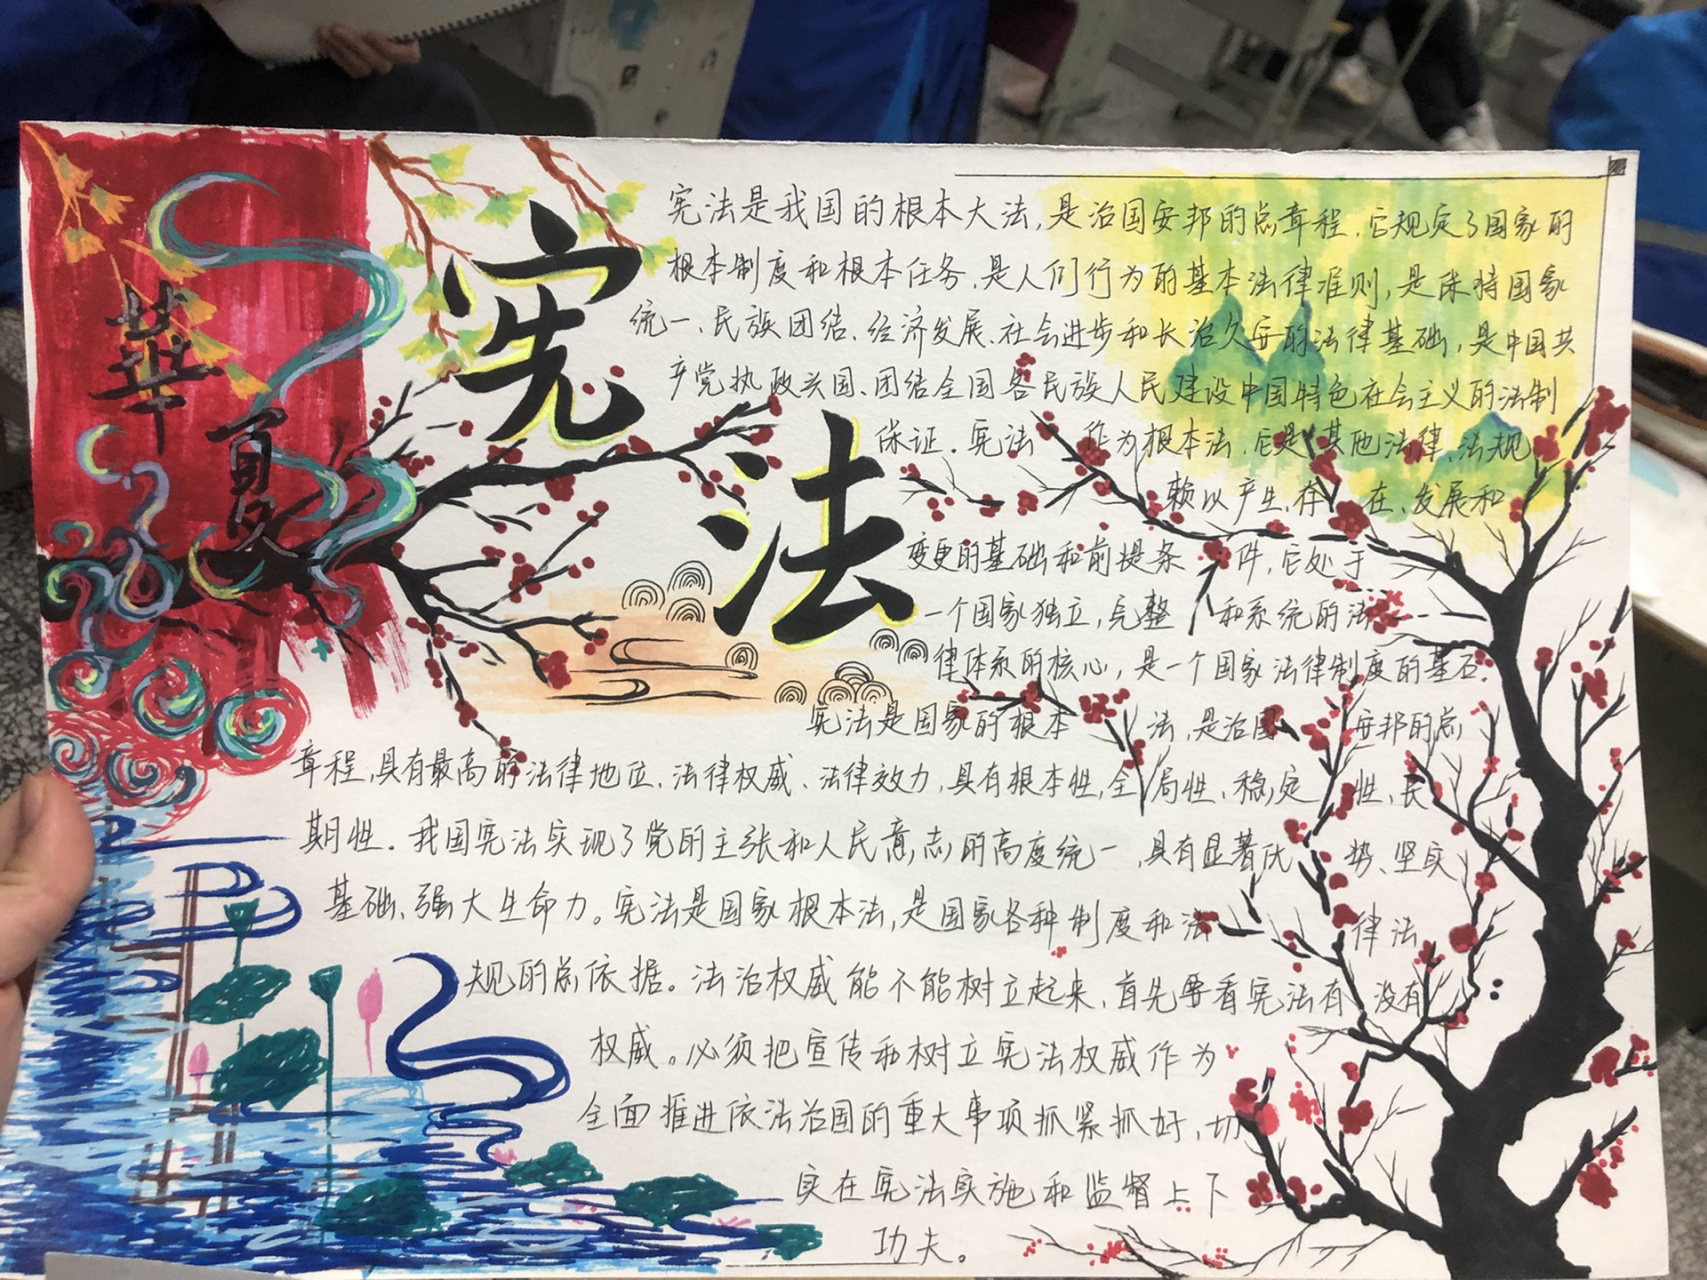 華
夏
宪
法
宪法是我国的根本大法,是治国安邦的总章程,它规定了国家的
根本制度和根本任务,是人们行为的基本法律准则,是保持国家
统一、民族团结、经济发展、社会进步和长治久安的法律基础,是中国共
产党执政兴国、团结全国各民族人民建设中国特色社会主义的法制
保证。宪法作为根本法,它是其他法律、法规
赖以产生、存在、发展和
变更的基础和前提条件,它处于
一个国家独立,完整和系统的法
律体系的核心,是一个国家法律制度的基石.
宪法是国家的根本法,是治国安邦的总
章程,具有最高的法律地位、法律权威、法律效力,具有根本性,全局性、稳定性,长
期性。我国宪法实现了党的主张和人民意志的高度统一,具有显著优势、坚实
基础、强大生命力。宪法是国家根本法,是国家各种制度和法律法
规的总依据。法治权威能不能树立起来,首先要看宪法有没有
权威。必须把宣传和树立宪法权威作为
全面推进依法治国的重大事项抓紧抓好,切
实在宪法实施和监督上下
功夫。